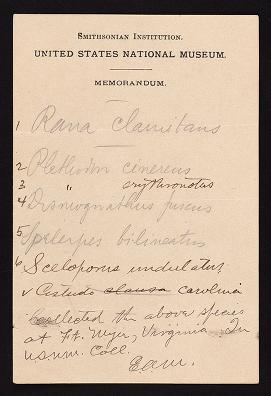 SMITHSONIAN INSTITUTION.
UNITED STATES NATIONAL MUSEUM.
MEMORANDUM.
1 Rana clamitans
2 Plethodon cinereus
3 " erythronotus
4 Desmognathus fuscus
5 Spelerpes bilineatus
6 Sceloporus undulatus
✓ Cistudo clausa carolina
Collected the above species
at Ft. Myer, Virginia. In
U.S.N.M. Coll.
E.A.M.